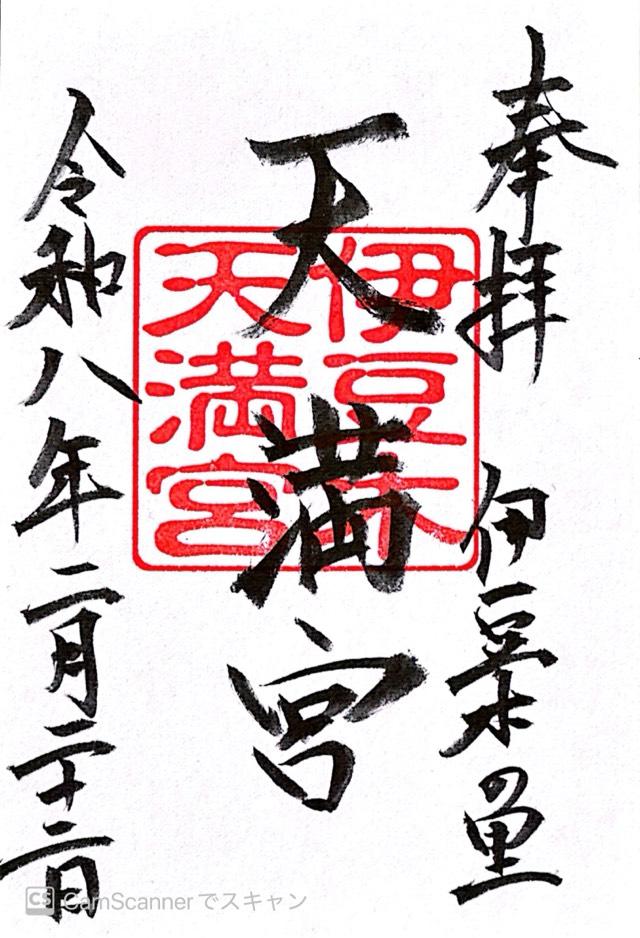 奉拝
伊豆木の里
天満宮
伊豆木
天満宮
令和八年二月二十二日
CS CamScannerでスキャン